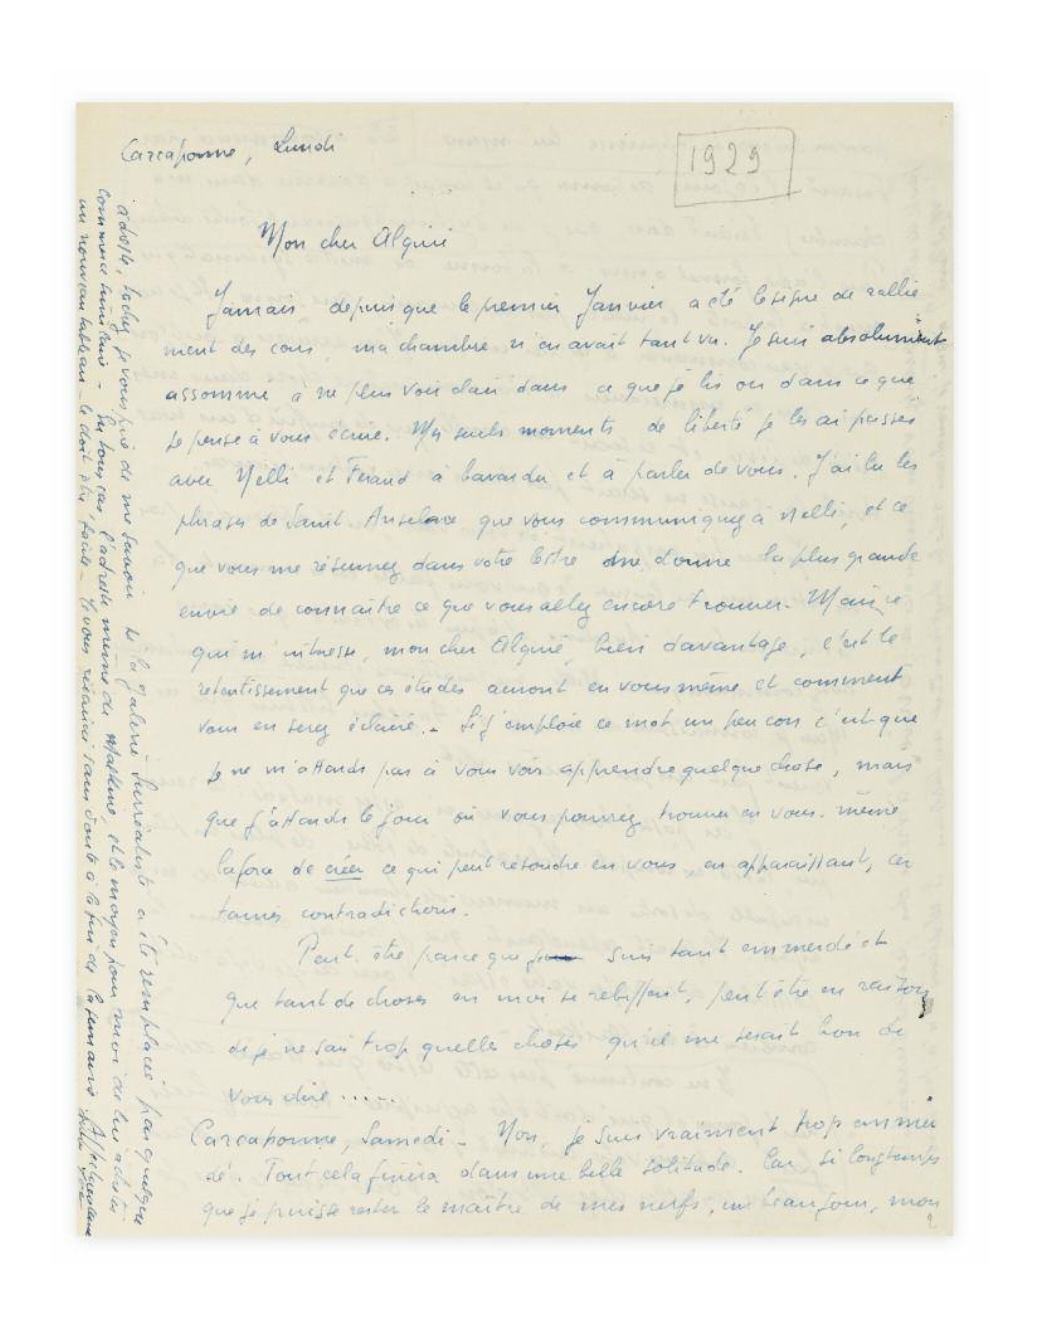 Carcassonne, Lundi
1929
Mon cher Alquié
Jamais depuis que le premier Janvier a été le signe de rallie
ment des cons, ma chambre n'en avait tant vu. Je suis absolument
assommé à ne plus voir clair dans ce que je lis ou dans ce que
je pense à vous écrire. Mes seuls moments de liberté je les ai passés
avec Nelli et Feraud à bavarder et à parler de vous. J'ai lu les
phrases de Saint. Anselme que vous communiquez à Nelli, et ce
que vous me résumez dans votre lettre me donne la plus grande
envie de connaître ce que vous allez encore trouver. Mais ce
qui m'intéresse, mon cher Alquié, bien davantage, c'est le
retentissement que ces études auront en vous même et comment
vous en serez éclairé. - Si j'emploie ce mot un peu con c'est que
je ne m'attends pas à vous voir apprendre quelque chose, mais
que j'attends le jour où vous pourrez trouver en vous. même
la force de créer ce qui peut résoudre en vous, en apparaissant, cer
taines contradictions.
Peut. être parce que je suis tant emmerdé et
que tant de choses en moi se rebiffent, peut être en raison
de je ne sais trop quelles choses qu'il me serait bon de
vous dire ......
Carcassonne, Samedi - Non, je suis vraiment trop emmer
dé. Tout cela finira dans une belle solitude. Car si longtemps
que je puisse rester le maître de mes nerfs, un beau jour, mon
tachez je vous prie de me savoir si la galerie surréaliste a été remplacée par quelque
commerce similaire - en tous cas l'adresse même de Malkine, et le moyen pour moi de lui acheter
un nouveau tableau - le doit être facile - Je vous récrirai sans doute à la fin de la semaine Affectueusement